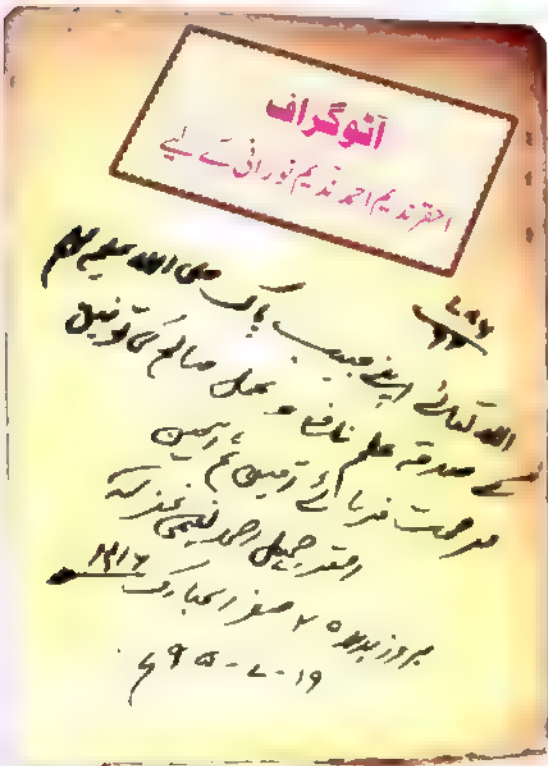 آٹوگراف
احقر ندیم احمد ندیم نورانی کے لیے
۷۸۶
۹۲
اللہ تعالیٰ اپنے حبیب پاک صلی اللہ علیہ وسلم
کے صدقہ علم نافع و عمل صالح کی توفیق
مرحمت فرمائے آمین ثم آمین
احقر جمیل احمد نعیمی غفرلہ
بروز بدھ ۲۵ صفر المبارک ۱۴۱۶
۱۹-۷-۹۵ء